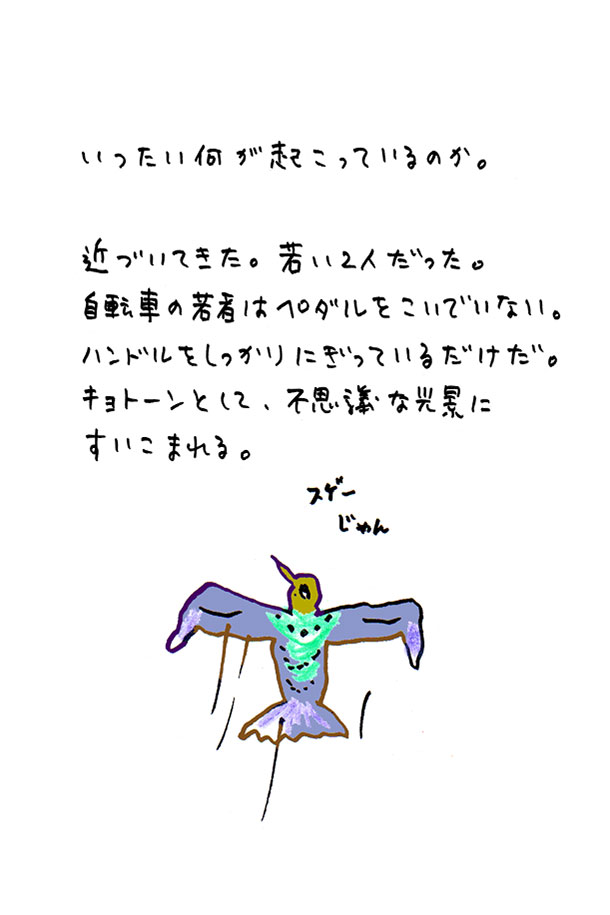 いったい何が起こっているのか。
近づいてきた。若い2人だった。
自転車の若者はペダルをこいでいない。
ハンドルをしっかりにぎっているだけだ。
キョトーンとして、不思議な光景に
すいこまれる。
スゲー
じゃん